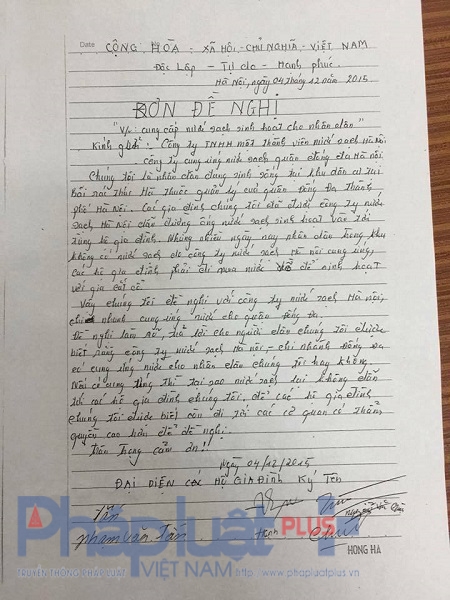 Date CỘNG HÒA - XÃ HỘI - CHỦ NGHĨA - VIỆT NAM
Độc Lập - Tự do - Hạnh phúc.
Hà Nội, ngày 04 tháng 12 năm 2015
ĐƠN ĐỀ NGHỊ
"V/v: cung cấp nước sạch sinh hoạt cho nhân dân"
Kính gửi: - Công ty TNHH một thành viên nước sạch Hà Nội.
Công ty cung ứng nước sạch quận đống đa Hà nội.
Chúng tôi là nhân dân đang sinh sống tại khu dân cư tại
Bãi rác thuộc quản lý của quận Đống Đa Thành
phố Hà Nội. Các gia đình chúng tôi đã được công ty nước
sạch Hà Nội dẫn đường ống nước sạch sinh hoạt vào tới
từng hộ gia đình. Nhưng nhiều ngày nay nhân dân trong khu
không có nước sạch do công ty nước sạch Hà nội cung ứng,
các hộ gia đình phải đi mua nước về để sinh hoạt
với giá cắt cổ.
Vậy chúng tôi đề nghị với công ty nước sạch Hà nội,
chi nhánh cung ứng nước cho quận Đống Đa.
Đề nghị làm rõ, trả lời cho người dân chúng tôi được
biết rằng công ty nước sạch Hà nội - chi nhánh Đống Đa
có cung ứng nước cho nhân dân chúng tôi hay không
Nếu có cung ứng thì tại sao nước sạch lại không đến
tới các hộ gia đình chúng tôi, để các hộ gia đình
chúng tôi được biết còn đi tới các cơ quan có thẩm
quyền cao hơn để đề nghị.
Trân Trọng cảm ơn!
Ngày 04/12/2015
ĐẠI DIỆN CÁC HỘ GIA ĐÌNH KÝ TÊN
Phạm Văn Tấn
Hạnh
HONG HA
Phapluat PLUS
TRUYỀN THÔNG PHÁP LUẬT VIỆT NAM - http://www.phapluatplus.vn